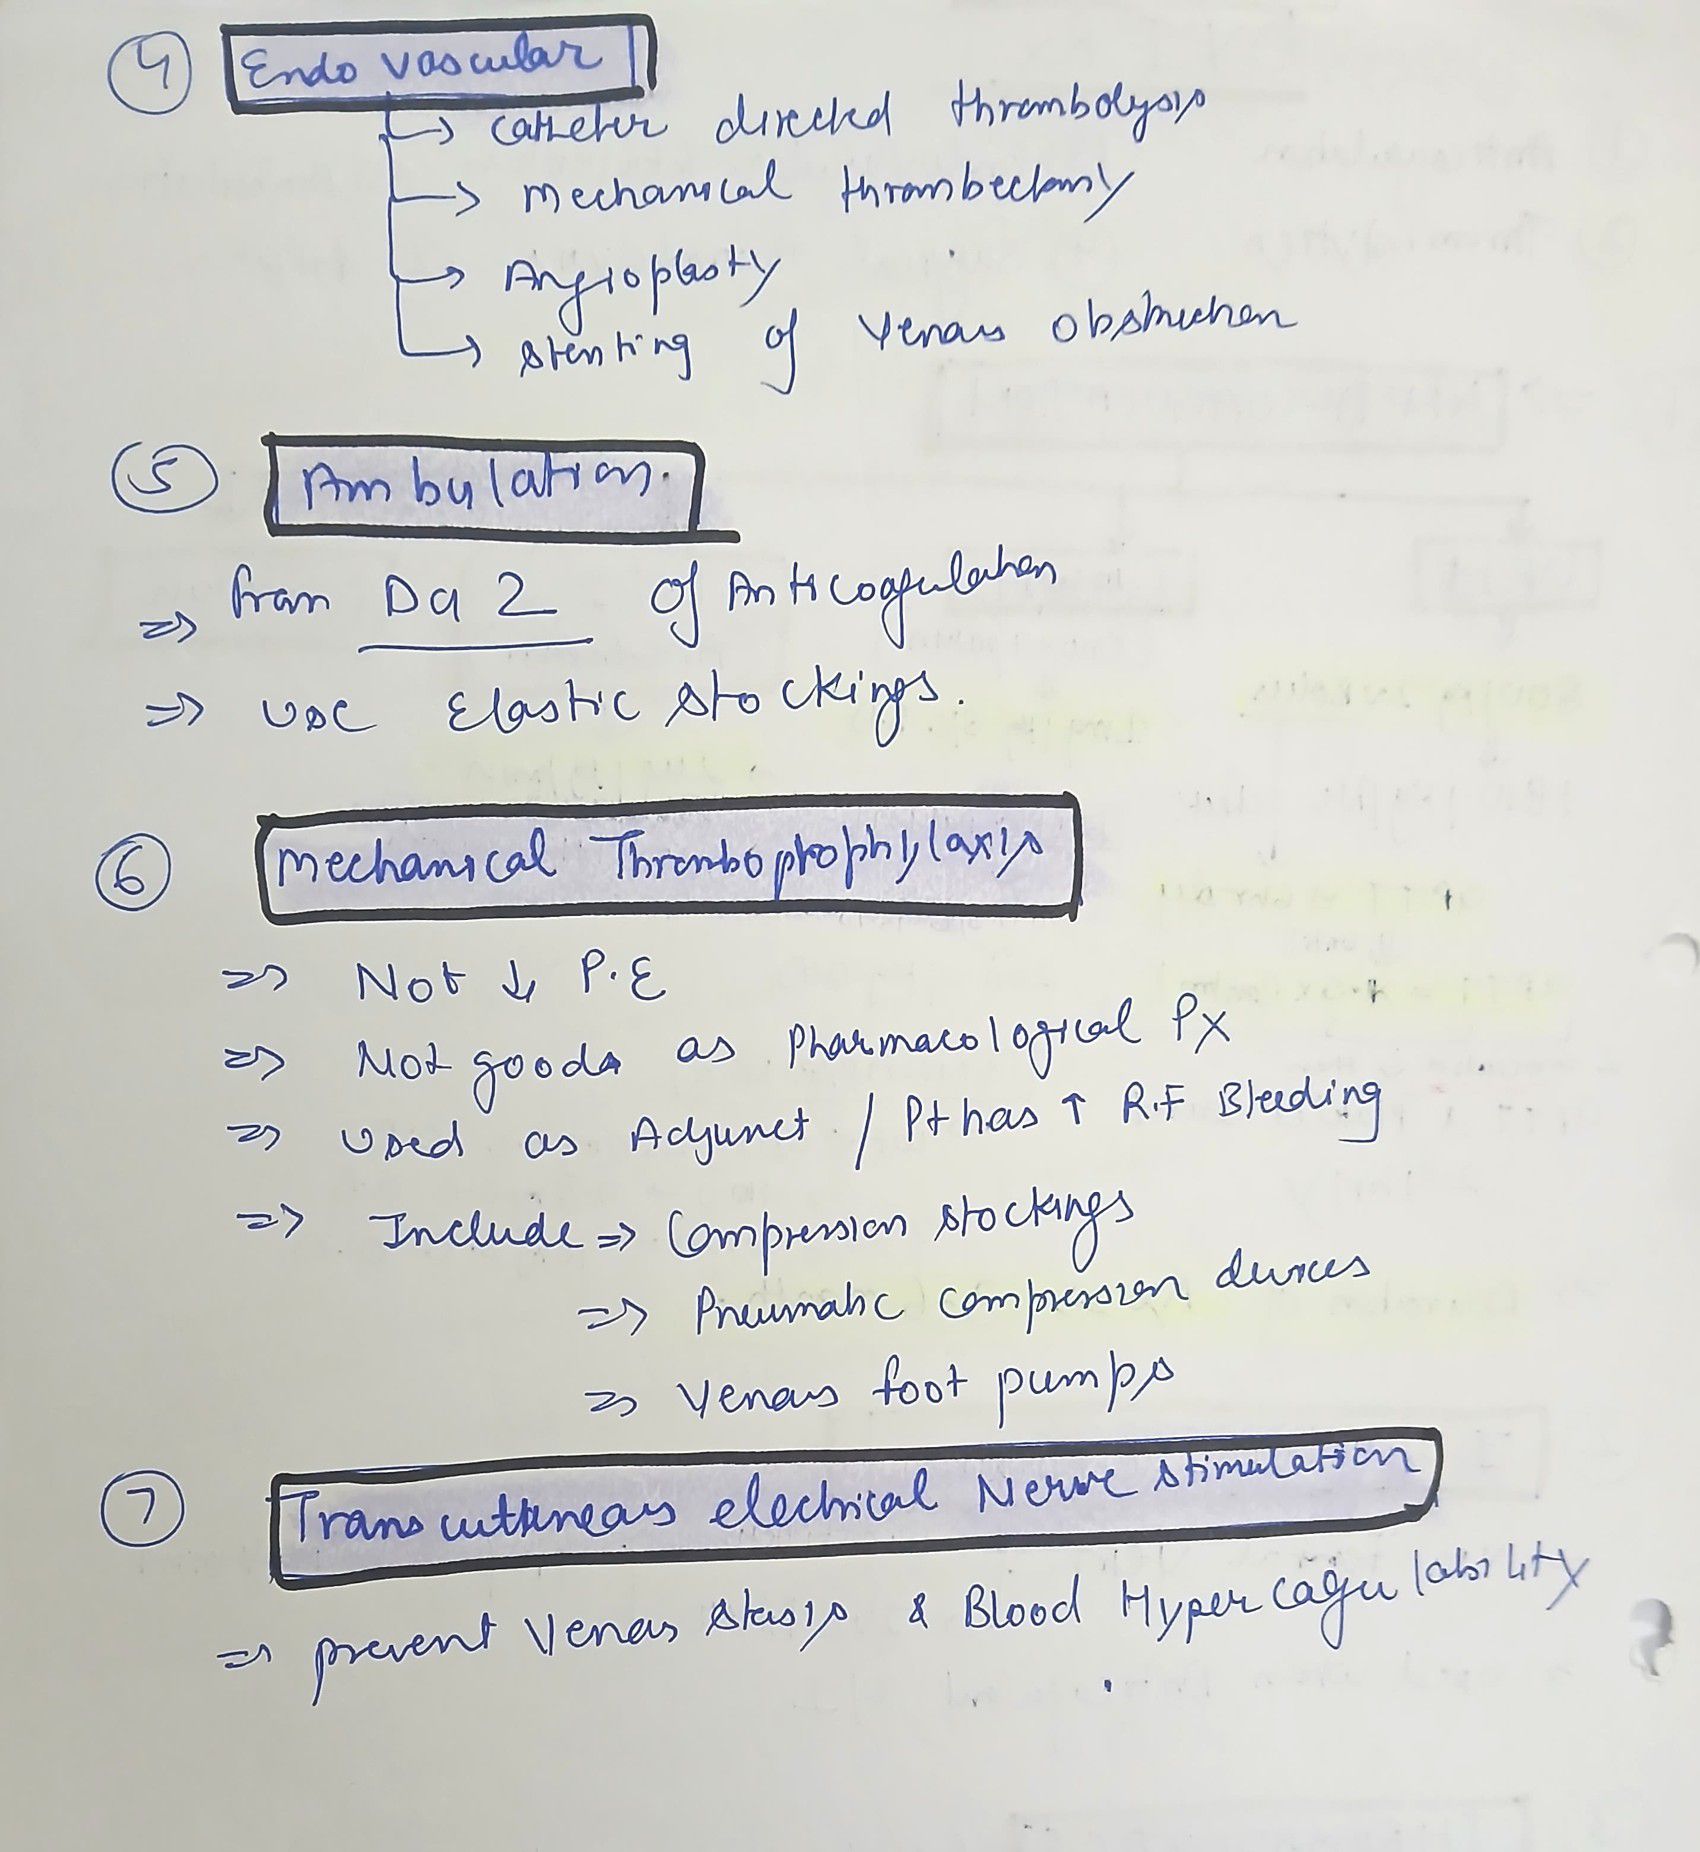 4 Endo vascular
↳ catheter directed thrombolysis
→ Mechanical thrombectomy
→ Angioplasty
→ stenting of Venous obstruction
5 Ambulation.
⇒ from Da 2 of Anticoagulation
⇒ use Elastic stockings.
6 Mechanical Thromboprophylaxis
⇒ Not ↓ P.E
⇒ Not good as Pharmacological Px
⇒ Used as Adjunct / Pt has ↑ R.F Bleeding
⇒ Include ⇒ Compression stockings
⇒ Pneumatic compression devices
⇒ Venous foot pumps
7 Transcuttaneous electrical Nerve stimulation
⇒ prevent Venous stasis & Blood Hypercagulability